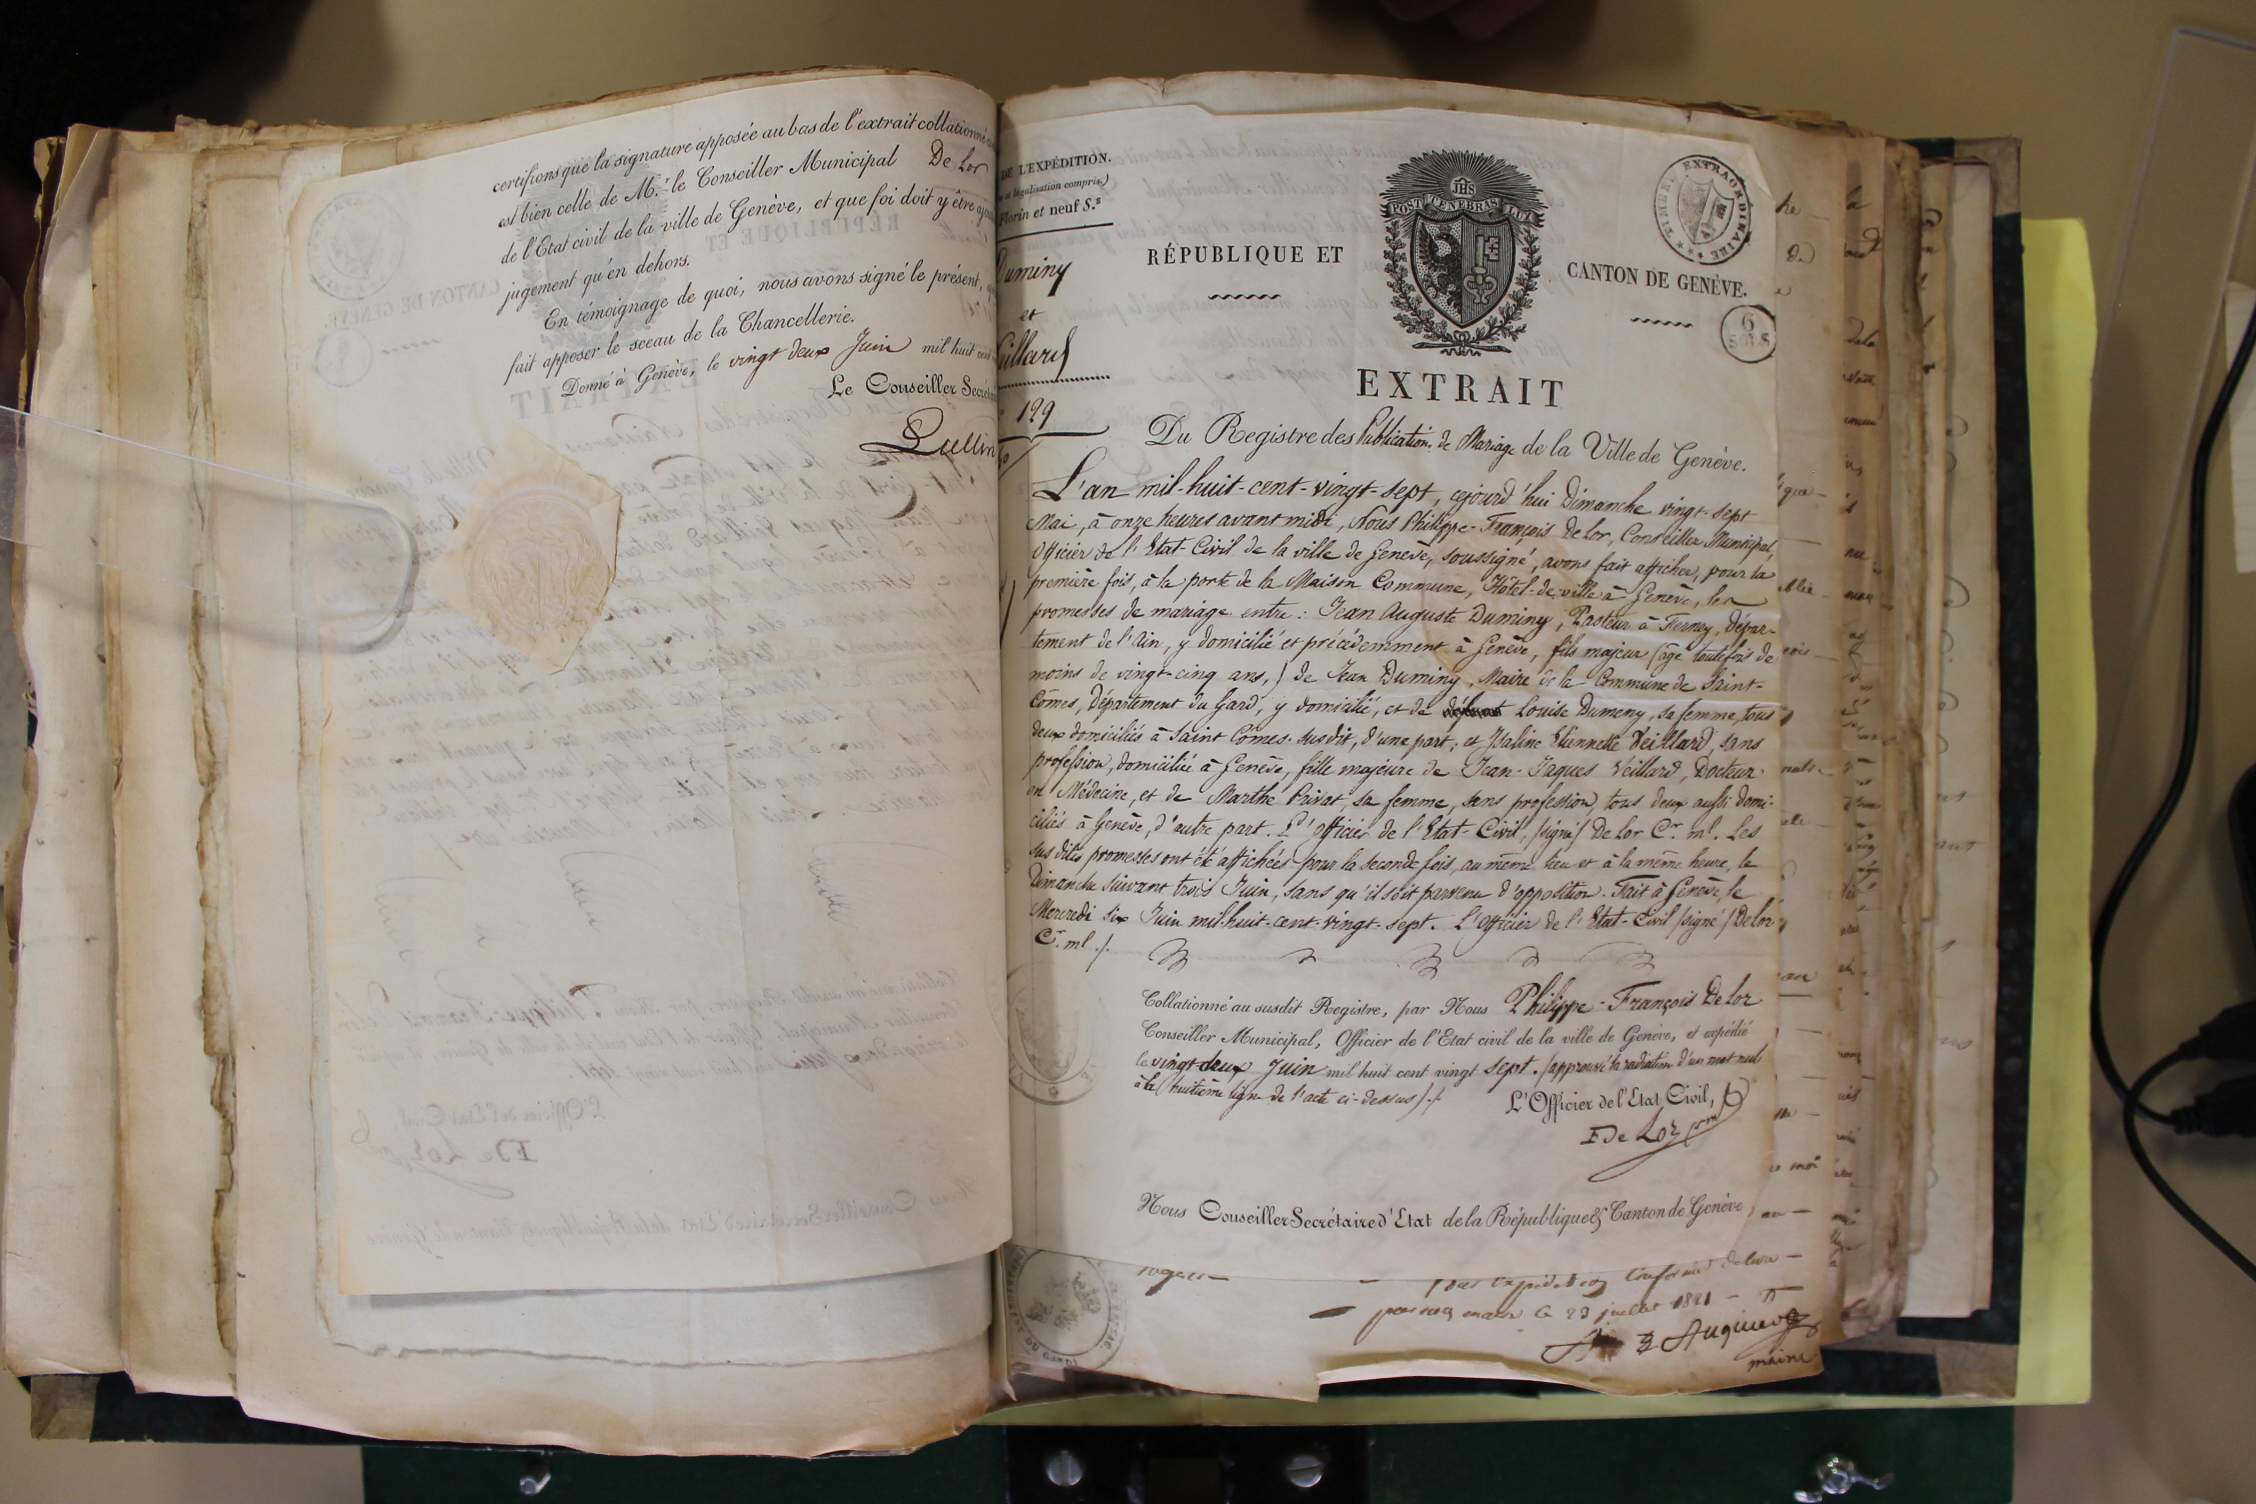 certifions que la signature apposée au bas de l'extrait collationné
est bien celle de M.r le Conseiller Municipal De Lor
de l'Etat civil de la ville de Genève, et que foi doit y être
jugement qu'en dehors.
En témoignage de quoi, nous avons signé le présent,
fait apposer le sceau de la Chancellerie.
Donné à Genève, le vingt deux Juin mil huit cent
Le Conseiller
Lullin
DE L'EXPÉDITION.
légalisation comprise)
Florin et neuf S.s
Duminy
et
Veillard
129
RÉPUBLIQUE ET
JHS
POST TENEBRAS LUX
CANTON DE GENÈVE.
TIMBRE EXTRAORDINAIRE
6
SOLS
EXTRAIT
Du Registre des Publication. de Mariage de la Ville de Genève.
L'an mil-huit-cent-vingt-sept, cejourd'hui Dimanche vingt-sept
Mai, à onze heures avant midi, Nous Philippe-François De Lor, Conseiller Municipal,
Officier de l'Etat-Civil de la ville de Genève, soussigné, avons fait afficher, pour la
première fois, à la porte de la Maison Commune, Hôtel-de-ville à Genève, les
promesses de mariage entre : Jean Auguste Duminy, Pasteur à Ferney, Dépar-
tement de l'Ain, y domicilié et précédemment à Genève, fils majeur (âgé toutefois de
moins de vingt-cinq ans,) de Jean Duminy, Maire de la Commune de Saint-
Cômes, Département du Gard, y domicilié, et de Louise Dumeny, sa femme, tous
deux domiciliés à Saint Cômes susdit, d'une part ; et Isaline Etiennette Veillard, sans
profession, domiciliée à Genève, fille majeure de Jean-Jaques Veillard, Docteur
en Médecine, et de Marthe Privat, sa femme, sans profession, tous deux aussi domi-
ciliés à Genève, d'autre part. L'officier de l'Etat-Civil, /signé/ De Lor C.r ml. Les
sus dites promesses ont été affichées pour la seconde fois, au même lieu et à la même heure, le
Dimanche suivant trois Juin, sans qu'il soit parvenu d'opposition. Fait à Genève, le
Mercredi six Juin mil-huit-cent-vingt-sept. L'officier de l'Etat-Civil /signé/ De Lor
C.r ml ./.
Collationné au susdit Registre, par Nous Philippe-François De Lor
Conseiller Municipal, Officier de l'Etat civil de la ville de Genève, et expédié
le vingt deux Juin mil huit cent vingt sept. /approuvé la radiation d'un mot nul
à la huitième ligne de l'acte ci-dessus/./.
L'Officier de l'Etat Civil,
F De Lor
Nous Conseiller Secrétaire d'Etat de la République & Canton de Genève
maire